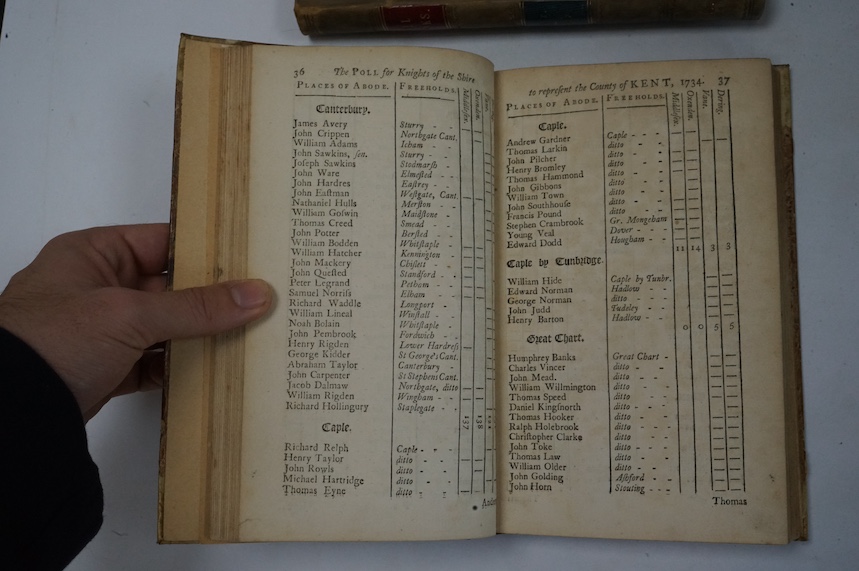 36 The POLL for Knights of the Shire
PLACES OF ABODE. FREEHOLDS. Middlesex. Oxenden.
Canterbury.
James Avery Sturry - -
John Crippen Northgate Cant.
William Adams Icham - -
John Sawkins, sen. Sturry - -
Joseph Sawkins Stodmarsh - -
John Ware Elmested - -
John Hardres Eastrey - -
John Eastman Westgate, Cant.
Nathaniel Hulls Merston - -
William Goswin Maidstone - -
Thomas Creed Smead - -
John Potter Bersted - -
William Bodden Whitstaple - -
William Hatcher Kennington -
John Mackery Chislett - -
John Quested Standford - -
Peter Legrand Petham - -
Samuel Norriss Elham - -
Richard Waddle Longport -
William Lineal Winstall - -
Noah Bolain Whitstaple - -
John Pembrook Fordwich - -
Henry Rigden Lower Hardress
George Kidder St George's Cant.
Abraham Taylor Canterbury - -
John Carpenter St Stephens Cant.
Jacob Dalmaw Northgate, ditto
William Rigden Wingham - -
Richard Hollingury Staplegate - -
157 138
Caple.
Richard Relph Caple - - -
Henry Taylor ditto - -
John Rowls ditto - -
Michael Hartridge ditto - -
Thomas Eyne ditto - -
to represent the County of KENT, 1734. 37
PLACES OF ABODE. FREEHOLDS. Middlesex. Oxenden. Vane. Dering.
Caple.
Andrew Gardner Caple - - -
Thomas Larkin ditto - -
John Pilcher ditto - -
Henry Bromley ditto - -
Thomas Hammond ditto - -
John Gibbons ditto - -
William Town ditto - -
John Southouse ditto - -
Francis Pound ditto - -
Stephen Crambrook Gr. Mongeham
Young Veal Dover - - -
Edward Dodd Hougham - -
11 14 3 3
Caple by Tunbridge.
William Hide Caple by Tunbr.
Edward Norman Hadlow - - -
George Norman ditto - -
John Judd Tudeley - -
Henry Barton Hadlow - -
0 0 5 5
Great Chart.
Humphrey Banks Great Chart -
Charles Vincer ditto - -
John Mead. ditto - -
William Willmington ditto - -
Thomas Speed ditto - -
Daniel Kingsnorth ditto - -
Thomas Hooker ditto - -
Ralph Holebrook ditto - -
Christopher Clarke ditto - -
John Toke ditto - -
Thomas Law ditto - -
William Older ditto - -
John Golding Ashford - -
John Horn Stouting - - -
Thomas